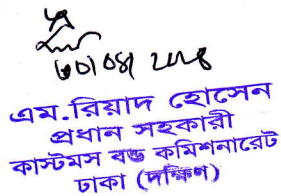 ৩০/০৪/২০২৪
এম. রিয়াদ হোসেন
প্রধান সহকারী
কাস্টমস বন্ড কমিশনারেট
ঢাকা (দক্ষিণ)